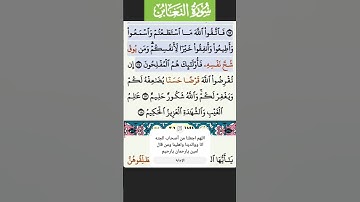 سُورَةُ التَّغَابُنِ
فَاتَّقُوا اللَّهَ مَا اسْتَطَعْتُمْ وَاسْمَعُوا
وَأَطِيعُوا وَأَنفِقُوا خَيْرًا لِّأَنفُسِكُمْ وَمَن يُوقَ
شُحَّ نَفْسِهِ فَأُولَٰئِكَ هُمُ الْمُفْلِحُونَ إِن
تُقْرِضُوا اللَّهَ قَرْضًا حَسَنًا يُضَاعِفْهُ لَكُمْ
وَيَغْفِرْ لَكُمْ وَاللَّهُ شَكُورٌ حَلِيمٌ
الْغَيْبِ وَالشَّهَادَةِ الْعَزِيزُ الْحَكِيمُ
اللهم اجعلنا من أصحاب الجنه
انا ووالدينا واهلينا ومن قال
امين يارحمان يارحيم